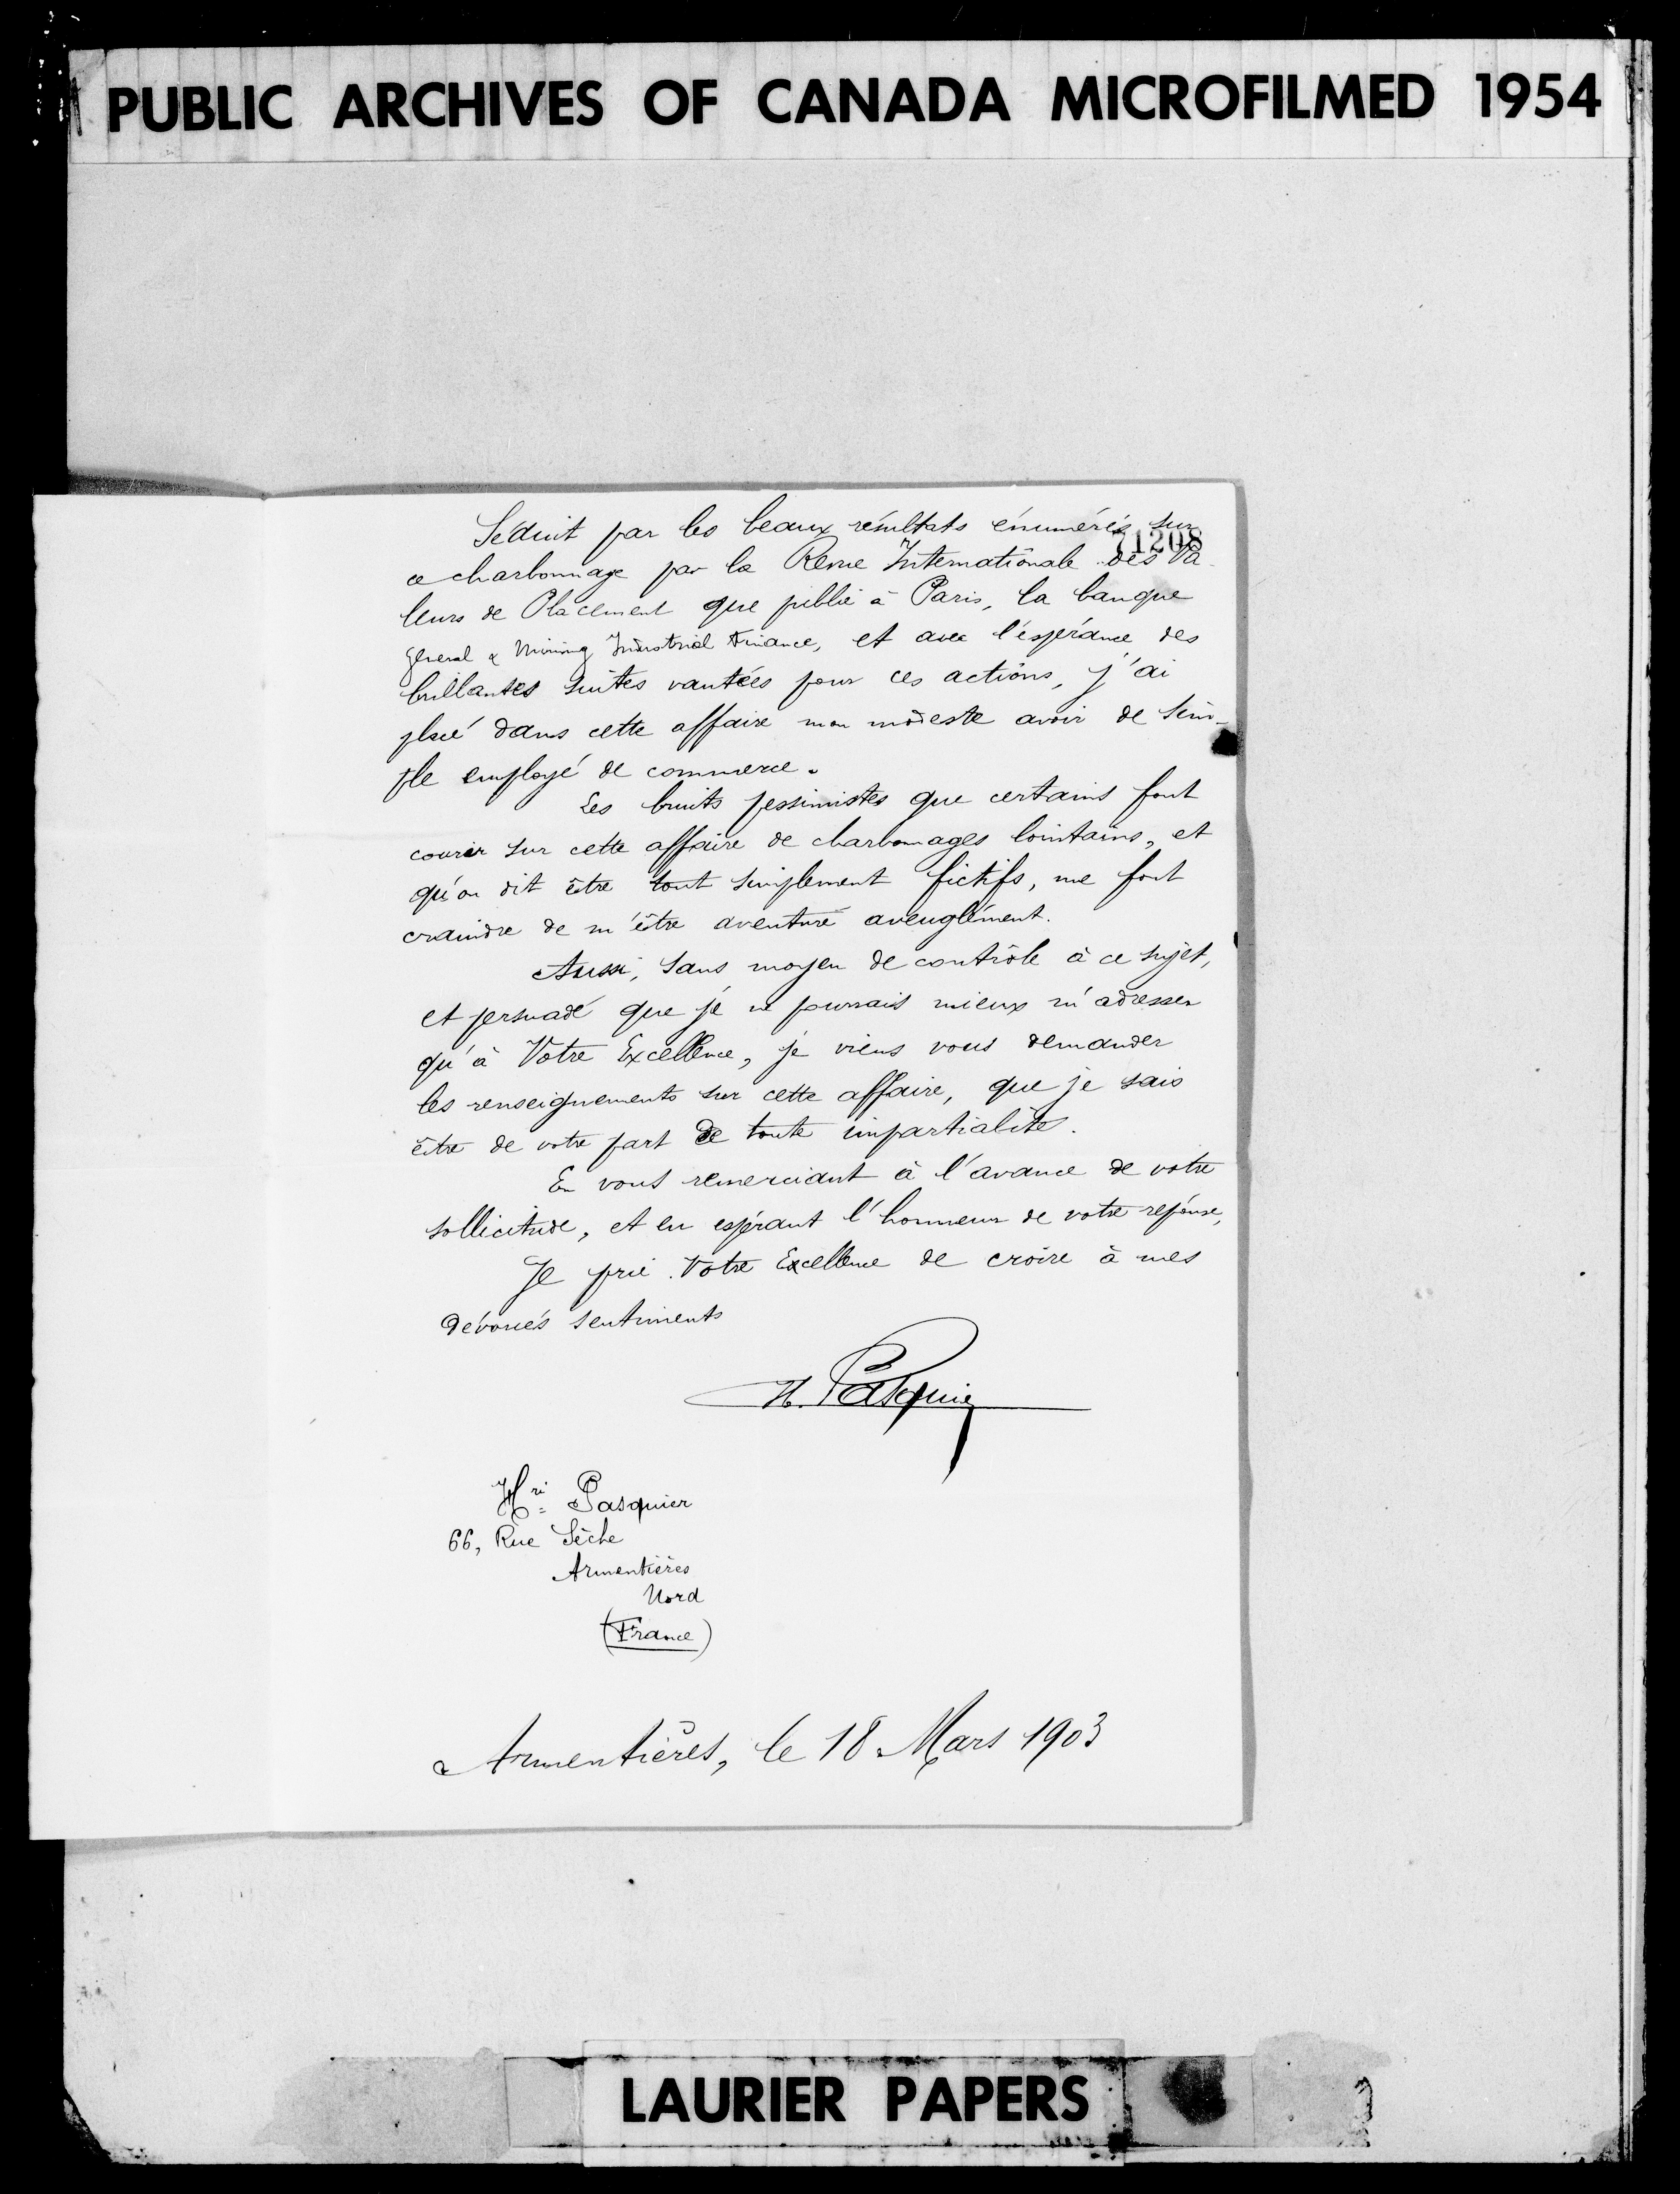 PUBLIC ARCHIVES OF CANADA MICROFILMED 1954
71208
Séduit par les beaux résultats énumérés sur
ce charbonnage par la Revue Internationale des Va-
leurs de Placement que publie à Paris, la banque
General & Mining Industrial Finance, et avec l'espérance des
brillantes suites vantées pour ces actions, j'ai
placé dans cette affaire mon modeste avoir de sim-
ple employé de commerce.
Les bruits pessimistes que certains font
courir sur cette affaire de charbonnages lointains, et
qu'on dit être tout simplement fictifs, me font
craindre de m'être aventuré aveuglément.
Aussi, sans moyen de contrôle à ce sujet,
et persuadé que je ne pourrais mieux m'adresser
qu'à Votre Excellence, je viens vous demander
les renseignements sur cette affaire, que je sais
être de votre part de toute impartialité.
En vous remerciant à l'avance de votre
sollicitude, et en espérant l'honneur de votre réponse,
Je prie Votre Excellence de croire à mes
dévoués sentiments
H. Pasquier
Hri Pasquier
66, Rue Sèche
Armentières
Nord
(France)
Armentières, le 18 Mars 1903
LAURIER PAPERS